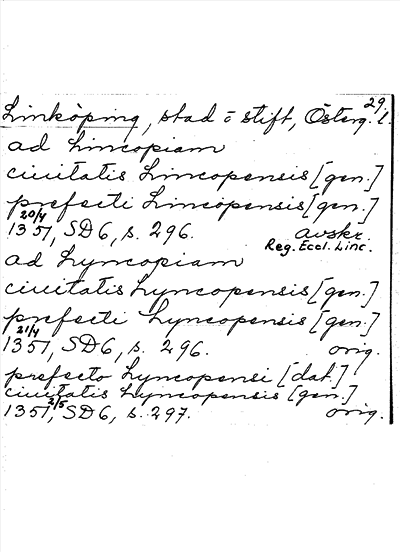 29.
Linköping, stad o stift, Österg. l.
ad Lincopiam
ciuitatis Lincopensis [gen.]
prefecti Lincopensis [gen.]
20/4
1351, SD6, s. 296. avskr.
Reg. Eccl. Linc.
ad Lyncopiam
ciuitatis Lyncopensis [gen.]
prefecti Lyncopensis [gen.]
21/4
1351, SD6, s. 296. orig.
prefecto Lyncopensi [dat.]
ciuitatis Lyncopensis [gen.]
2/5
1351, SD6, s. 297. orig.